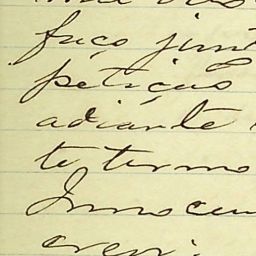 faço junt
petiçaõ
adiante
te termo
Innocen
crevi.